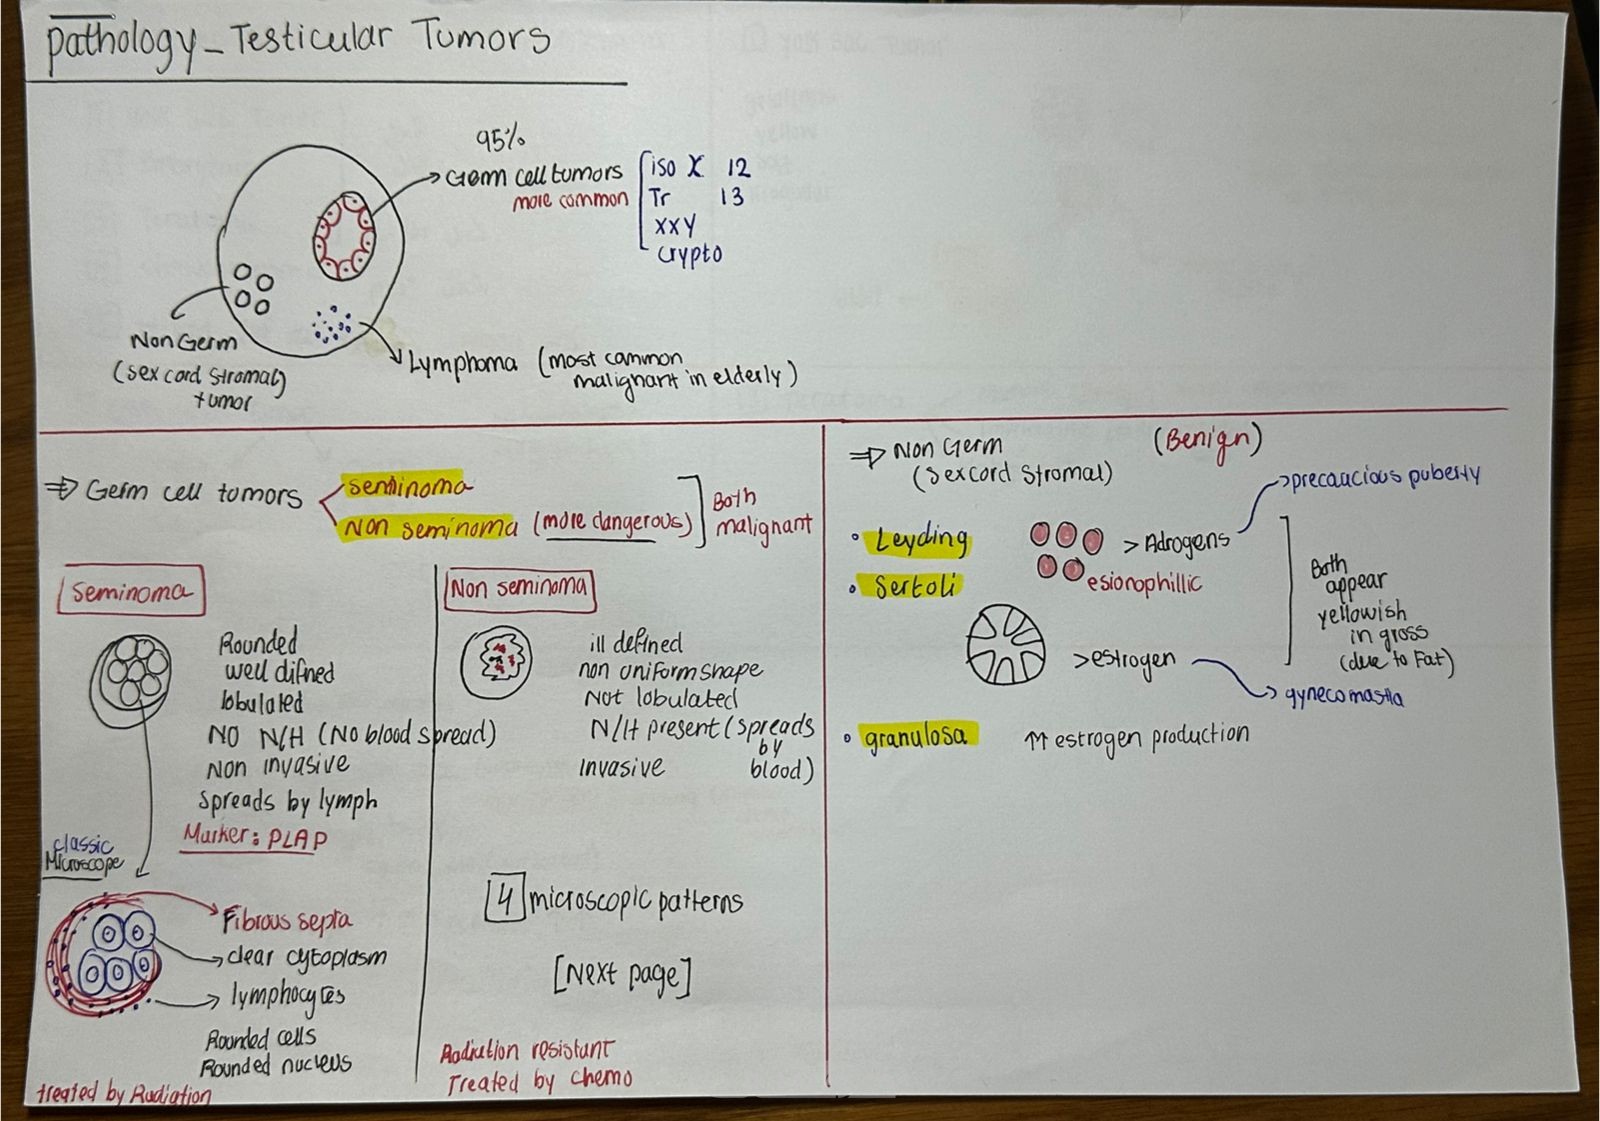 pathology_Testicular Tumors
95%
Germ cell tumors
more common
iso X 12
Tr 13
XXY
crypto
Non Germ
(sex cord stromal)
tumor
Lymphoma (most common
malignant in elderly)
⇒ Germ cell tumors
seminoma
Non seminoma (more dangerous)
Both
malignant
Seminoma
Rounded
well difined
lobulated
NO N/H (No blood spread)
Non invasive
spreads by lymph
Marker: PLAP
classic
Microscope
Fibrous septa
clear cytoplasm
lymphocytes
Rounded cells
Rounded nucleus
treated by Radiation
Non seminoma
ill defined
non uniform shape
Not lobulated
N/H present (spreads
by
invasive blood)
4 microscopic patterns
[Next page]
Radiation resistant
Treated by chemo
⇒ Non Germ (Benign)
(Sexcord Stromal)
precaucious puberty
• Leyding
> Adrogens
• Sertoli
esionophillic
>estrogen
gynecomastia
Both
appear
yellowish
in gross
(due to Fat)
• granulosa ↑↑ estrogen production